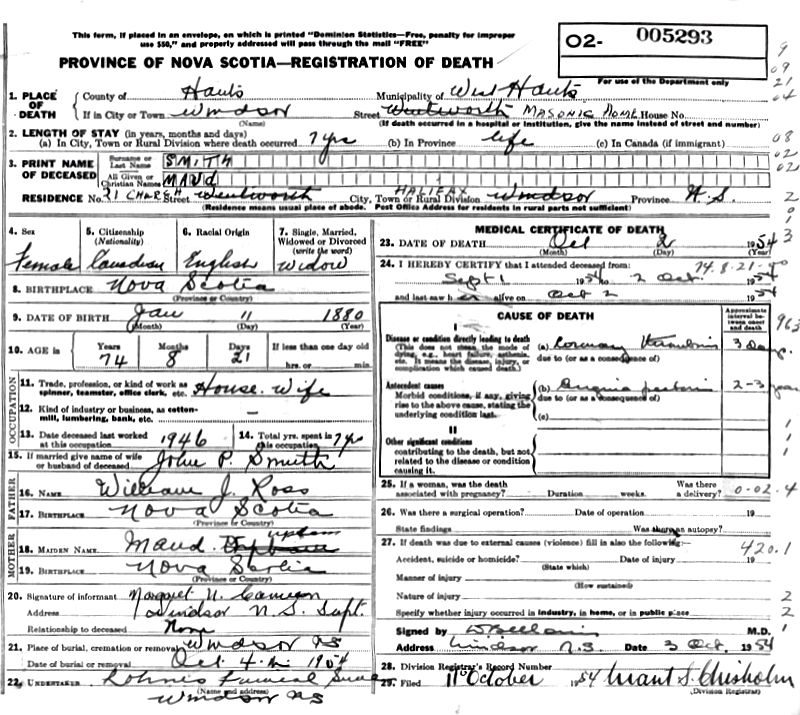 This form, if placed in an envelope, on which is printed "Dominion Statistics—Free, penalty for improper
use $50," and properly addressed will pass through the mail "FREE"
O2- 005293
For use of the Department only
PROVINCE OF NOVA SCOTIA—REGISTRATION OF DEATH
1. PLACE OF DEATH
County of Hants Municipality of West Hants
If in City or Town Windsor Street Wentworth MASONIC HOME House No.
(Name) (If death occurred in a hospital or institution, give the name instead of street and number)
2. LENGTH OF STAY (in years, months and days)
(a) In City, Town or Rural Division where death occurred 7 yrs (b) In Province life (c) In Canada (if immigrant)
3. PRINT NAME OF DECEASED
Surname or Last Name SMITH
All Given or Christian Names MAUD
RESIDENCE No. Street Wentworth City, Town or Rural Division HALIFAX Windsor Province N.S.
(Residence means usual place of abode. Post Office Address for residents in rural parts not sufficient)
4. Sex 5. Citizenship (Nationality) 6. Racial Origin 7. Single, Married, Widowed or Divorced (write the word)
Female Canadian English Widow
8. BIRTHPLACE Nova Scotia
(Province or Country)
9. DATE OF BIRTH Jan 11 1880
(Month) (Day) (Year)
10. AGE in Years Months Days If less than one day old
74 8 21 hrs. or min.
OCCUPATION
11. Trade, profession, or kind of work as spinner, teamster, office clerk, etc. House. Wife
12. Kind of industry or business, as cotton-mill, lumbering, bank, etc. —
13. Date deceased last worked at this occupation 1946 14. Total yrs. spent in this occupation
15. If married give name of wife or husband of deceased John P. Smith
FATHER
16. NAME William J. Ross
17. BIRTHPLACE Nova Scotia
(Province or Country)
MOTHER
18. MAIDEN NAME Maud Upham
19. BIRTHPLACE Nova Scotia
(Province or Country)
20. Signature of informant Margaret N. Cameron
Address Windsor N.S. Supt.
Relationship to deceased None
21. Place of burial, cremation or removal Windsor NS
Date of burial or removal Oct 4th 1954
22. UNDERTAKER Funeral
(Name and address)
Windsor NS
MEDICAL CERTIFICATE OF DEATH
23. DATE OF DEATH Oct 2 1954
(Month) (Day) (Year)
24. I HEREBY CERTIFY that I attended deceased from: 74.8.21
Sept 1 1954 to 2 Oct. 1954
and last saw her alive on Oct 2 1954
CAUSE OF DEATH
Approximate interval between onset and death
I
Disease or condition directly leading to death
(This does not mean the mode of dying, e.g., heart failure, asthenia, etc. It means the disease, injury, or complication which caused death.)
(a) Coronary Thrombosis 3 Days.
due to (or as a consequence of)
Antecedent causes
Morbid conditions, if any, giving rise to the above cause, stating the underlying condition last.
(b) Angina pectoris 2-3 years
due to (or as a consequence of)
(c)
II
Other significant conditions
contributing to the death, but not related to the disease or condition causing it.
25. If a woman, was the death associated with pregnancy? Duration weeks. Was there a delivery?
0-02.4
26. Was there a surgical operation? Date of operation 19
State findings Was there an autopsy?
27. If death was due to external causes (violence) fill in also the following:
420.1
Accident, suicide or homicide? Date of injury 19
(State which)
Manner of injury
(How sustained)
Nature of injury
Specify whether injury occurred in industry, in home, or in public place
Signed by M.D.
Address Windsor N.S. Date 3 Oct. 1954
28. Division Registrar's Record Number
29. Filed 11 October 1954 Grant S. Chisholm
(Division Registrar)